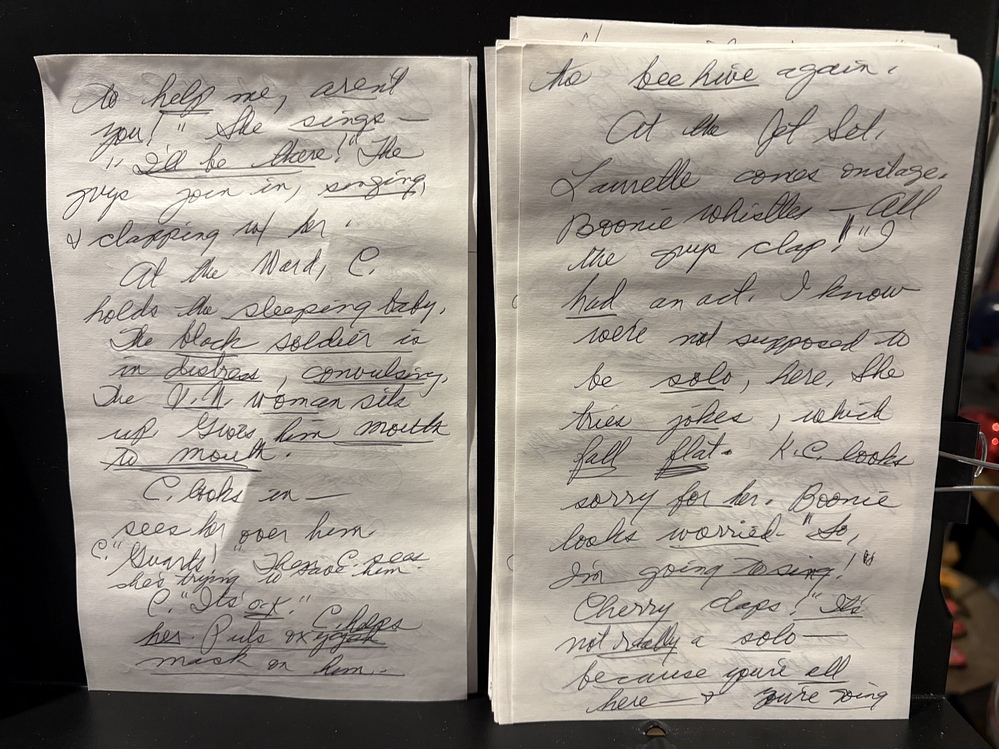 to help me, aren't
you!" She sings —
"I'll be there!" The
guys join in, singing,
& clapping w/ her.
At the Ward, C.
holds the sleeping baby.
The black soldier is
in distress, convulsing.
The V.N. woman sits
up Gives him mouth
to mouth.
C. looks in —
sees her over him
C. "Guards!" Then C. sees
she's trying to save him.
C. "It's o.k." C. helps
her. Puts oxygen
mask on him.
the beehive again.
At the Jet Set,
Laurette comes onstage.
Boonie whistles — All
the guys clap! "I
had an act. I know
we're not supposed to
be solo, here. She
tries jokes, which
fall flat. K.C. looks
sorry for her. Boonie
looks worried. "So,
I'm going to sing!"
Cherry claps! "It's
not really a solo —
because you're all
here — & you're going